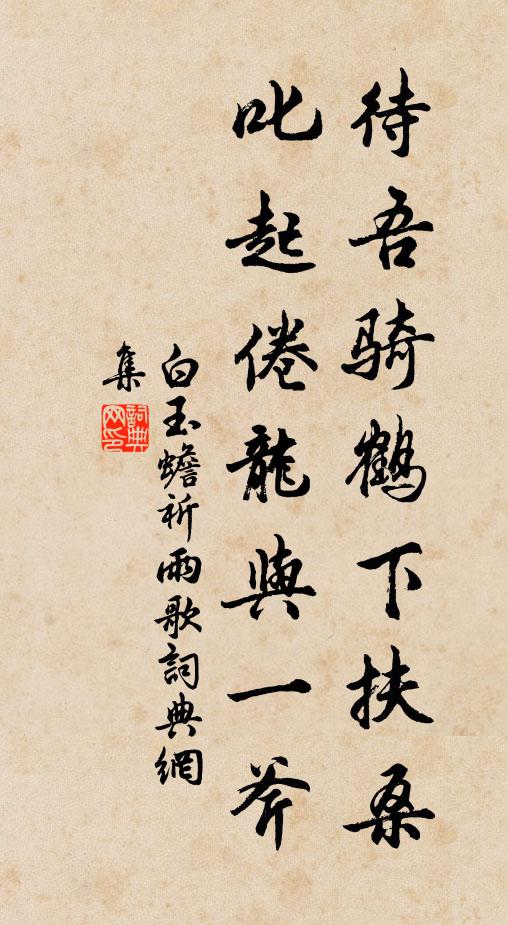 待吾骑鹤下扶桑
叱起倦龍與一斧
白玉蟾祈雨歌詞典網
集
詞典网印